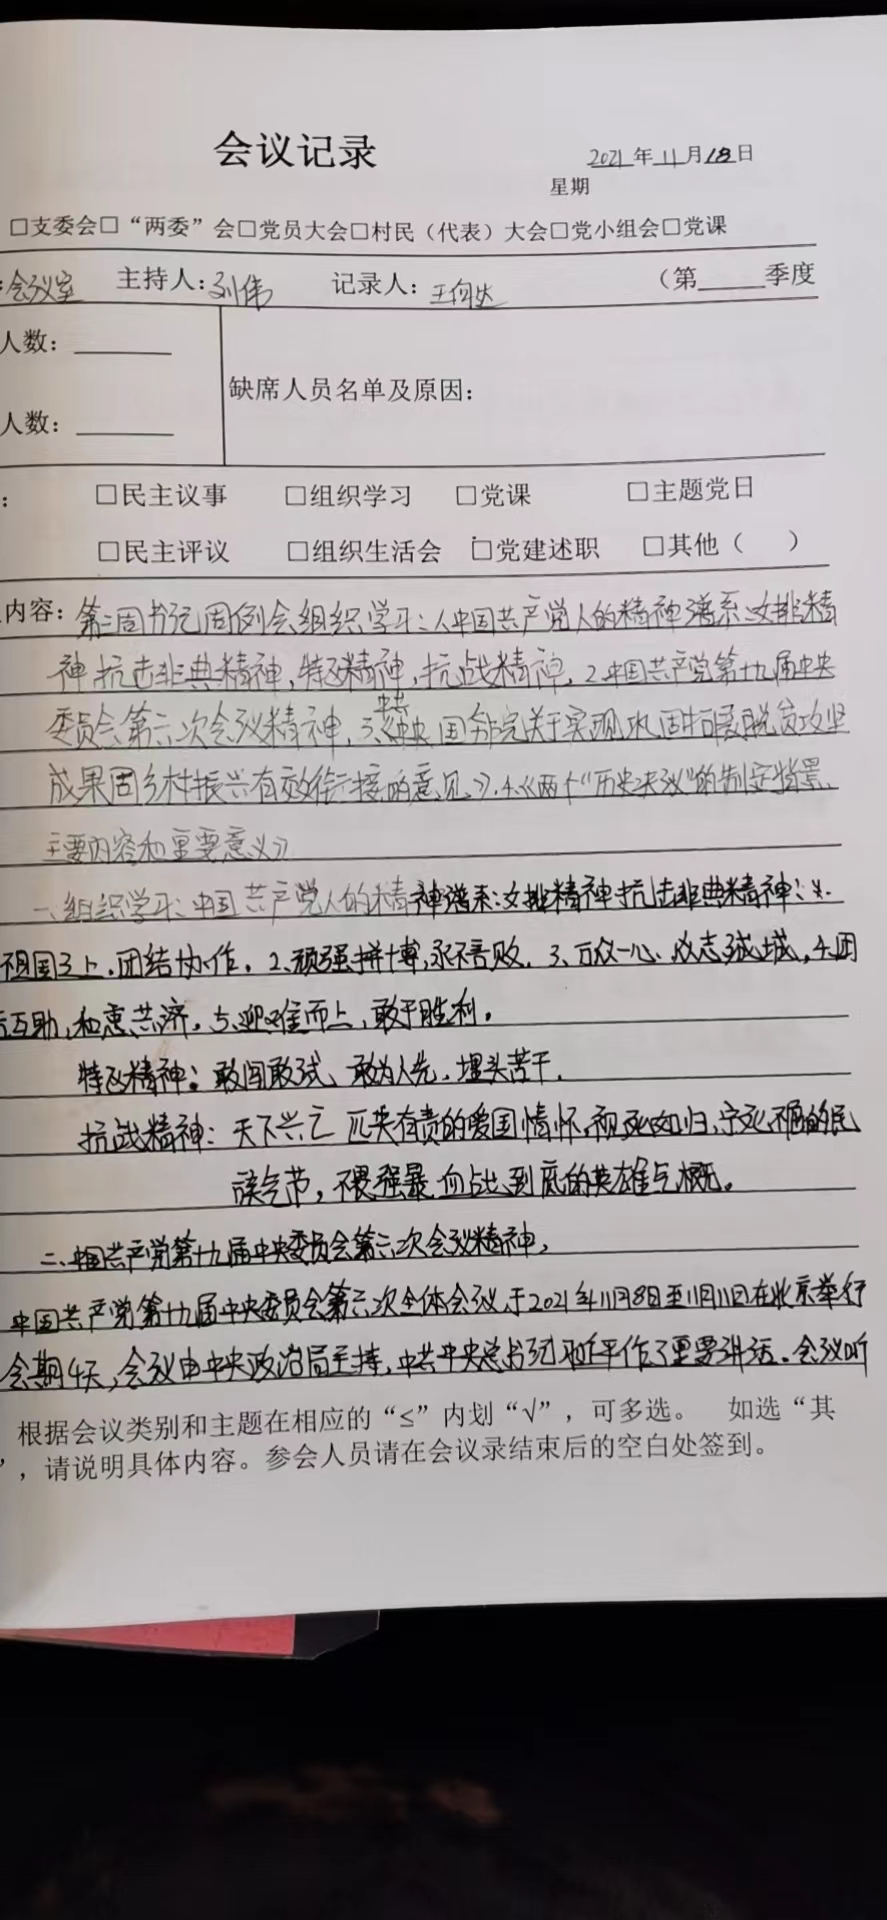 会议记录
2021年11月18日
星期
□支委会□“两委”会□党员大会□村民（代表）大会□党小组会□党课
:会议室 主持人:刘伟 记录人: （第 季度
人数:
缺席人员名单及原因:
人数:
: □民主议事 □组织学习 □党课 □主题党日
□民主评议 □组织生活会 □党建述职 □其他（ ）
内容: 第三周书记周例会组织学习:1、中国共产党人的精神谱系:女排精
神抗击非典精神,特区精神,抗战精神,2.中国共产党第十九届中央
委员会第六次会议精神,3.《中央 国务院关于实现巩固拓展脱贫攻坚
成果同乡村振兴有效衔接的意见》.4.《两个“历史决议”的制定背景、
主要内容和重要意义》
一、组织学习:中国共产党人的精神谱系:女排精神抗击非典精神:1、
祖国至上.团结协作. 2.顽强拼搏,永不言败. 3、万众一心.众志成城,4.团
结互助,和衷共济. 5.迎难而上,敢于胜利.
特区精神:敢闯敢试、敢为人先,埋头苦干.
抗战精神:天下兴亡 匹夫有责的爱国情怀,视死如归,宁死不屈的民
族气节,不畏强暴 血战到底的英雄气概.
二、中国共产党第十九届中央委员会第六次会议精神,
中国共产党第十九届中央委员会第六次全体会议,于2021年11月8日至11月11日在北京举行
会期4天,会议由中央政治局主持,中共中央总书记习近平作了重要讲话.会议听
根据会议类别和主题在相应的“≤”内划“√”，可多选。 如选“其
”，请说明具体内容。参会人员请在会议录结束后的空白处签到。